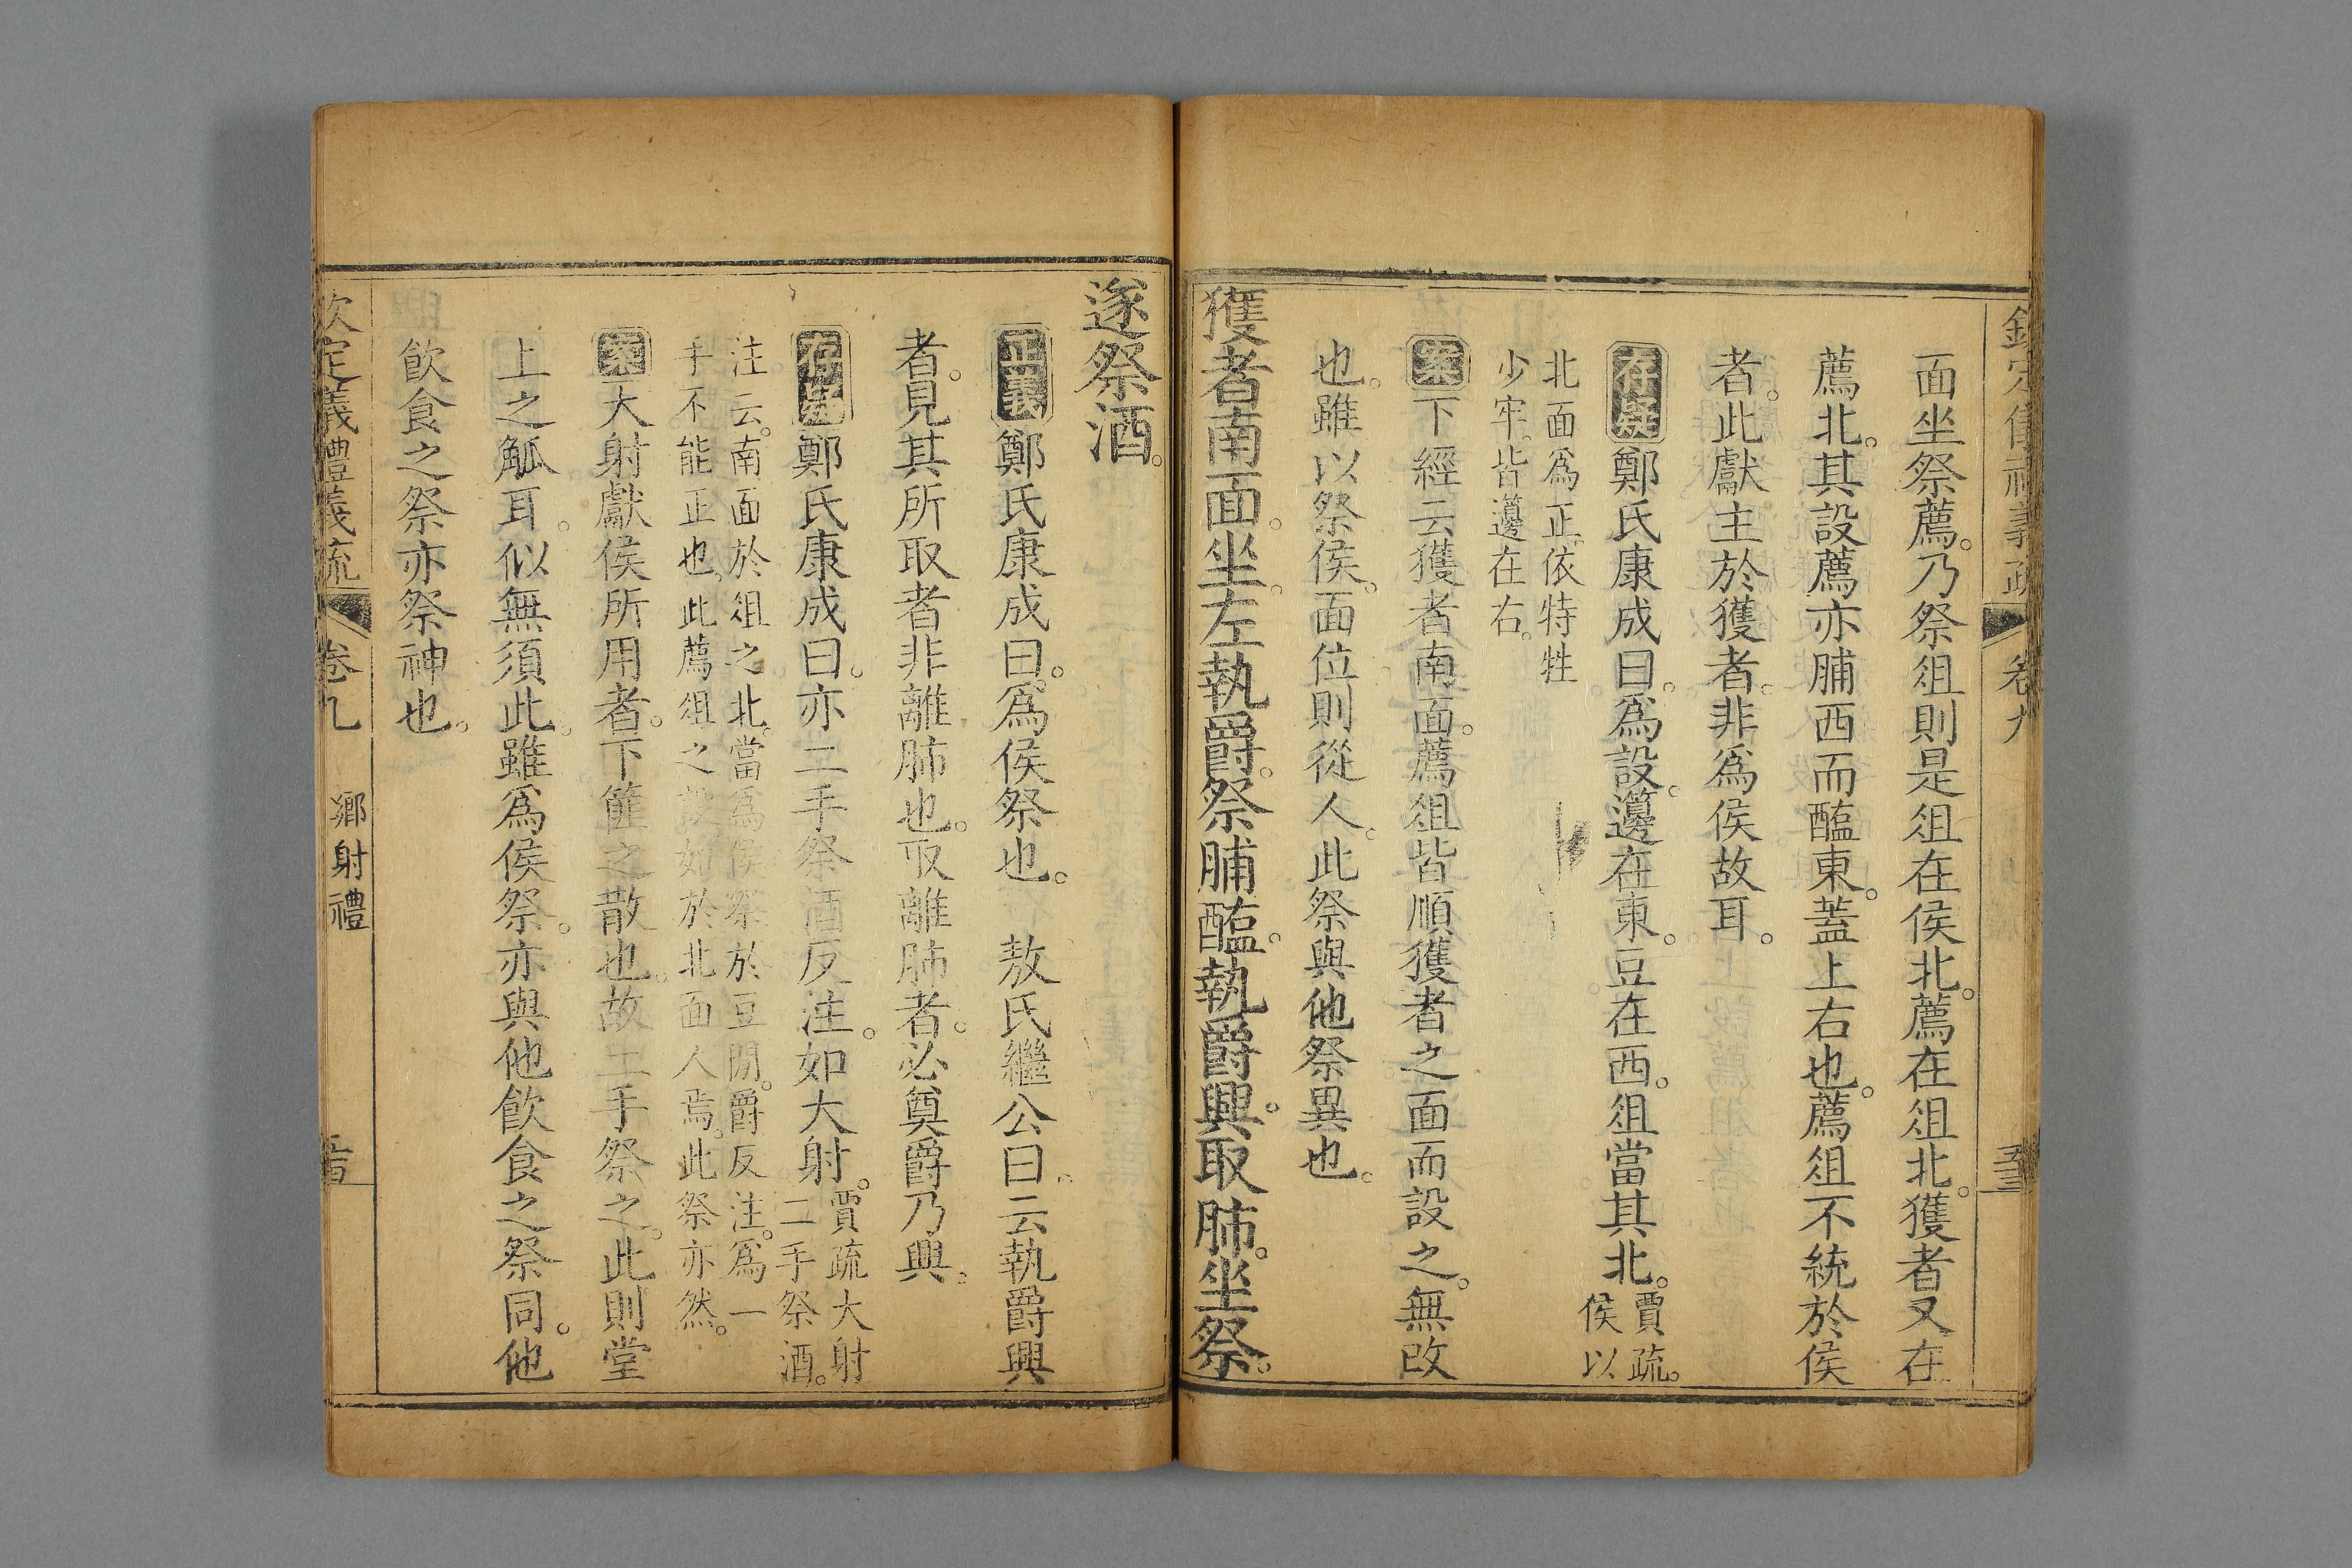 面坐祭薦。乃祭俎則是俎在侯北。薦在俎北。獲者又在
薦北。其設薦亦脯西而醢東。蓋上右也。薦俎不統於侯
者。此獻主於獲者。非爲侯故耳。
存疑鄭氏康成曰。爲設籩在東。豆在西。俎當其北。賈疏。侯以
北面爲正。依特牲
少牢。皆籩在右。
案下經云獲者南面。薦俎皆順獲者之面而設之。無改
也。雖以祭侯。面位則從人。此祭與他祭異也。
獲者南面。坐。左執爵。祭脯醢。執爵興。取肺。坐祭。
遂祭酒。
正義鄭氏康成曰。爲侯祭也。 敖氏繼公曰。云執爵興
者。見其所取者非離肺也。取離肺者。必奠爵乃興。
存疑鄭氏康成曰。亦二手祭酒反注。如大射。賈疏大射二手祭酒。
注云。南面於俎之北。當爲侯祭於豆閒。爵反注。爲一
手不能正也。此薦俎之設如於北面人焉。此祭亦然。
案大射獻侯所用者。下篚之散也。故二手祭之。此則堂
上之觚耳。似無須此。雖爲侯祭。亦與他飲食之祭同。他
飲食之祭亦祭神也。
欽定義禮義疏 卷九 鄉射禮